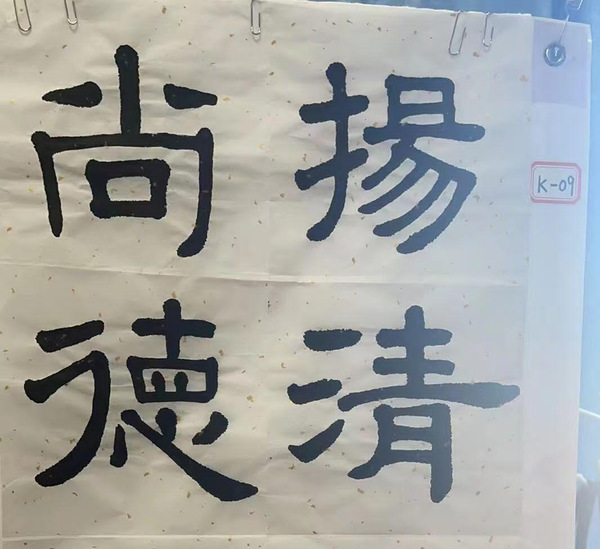 揚清
尚德
K-09